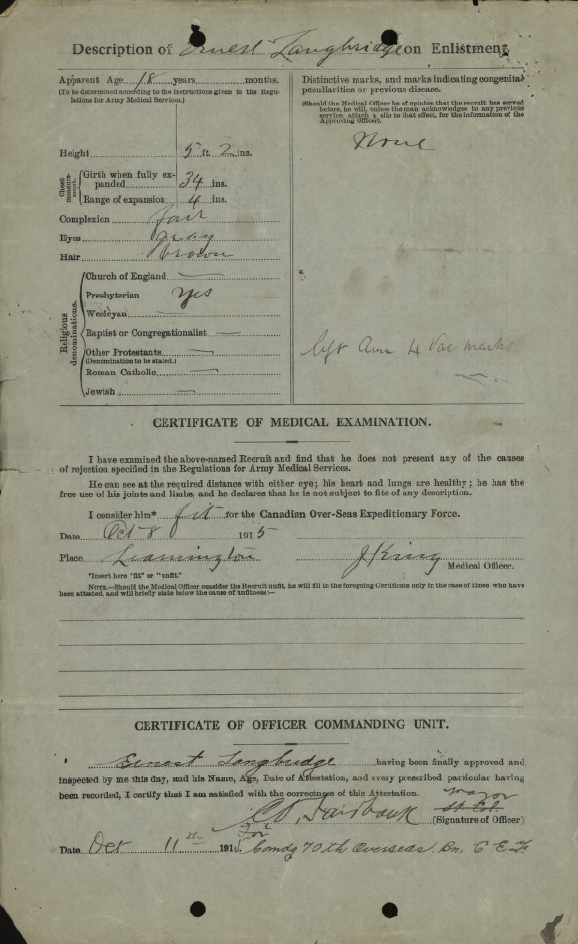 Description of Ernest Langbridge on Enlistment.
Apparent Age 18 years months.
(To be determined according to the instructions given in the Regulations for Army Medical Services.)
Height 5 ft. 2 ins.
Chest measurement.
Girth when fully expanded 34 ins.
Range of expansion 4 ins.
Complexion fair
Eyes gray
Hair brown
Religious denominations.
Church of England
Presbyterian yes
Wesleyan
Baptist or Congregationalist
Other Protestants
(Denomination to be stated.)
Roman Catholic
Jewish
Distinctive marks, and marks indicating congenital
peculiarities or previous disease.
(Should the Medical Officer be of opinion that the recruit has served
before, he will, unless the man acknowledges to any previous
service, attach a slip to that effect, for the information of the
Approving Officer).
None
left Arm 4 Vac marks
CERTIFICATE OF MEDICAL EXAMINATION.
I have examined the above-named Recruit and find that he does not present any of the causes
of rejection specified in the Regulations for Army Medical Services.
He can see at the required distance with either eye; his heart and lungs are healthy; he has the
free use of his joints and limbs, and he declares that he is not subject to fits of any description.
I consider him* fit for the Canadian Over-Seas Expeditionary Force.
Date Oct 8 1915
Place Leamington J King
Medical Officer.
*Insert here "fit" or "unfit."
NOTE.—Should the Medical Officer consider the Recruit unfit, he will fill in the foregoing Certificate only in the case of those who have
been attested, and will briefly state below the cause of unfitness:—
CERTIFICATE OF OFFICER COMMANDING UNIT.
Ernest Langbridge having been finally approved and
inspected by me this day, and his Name, Age, Date of Attestation, and every prescribed particular having
been recorded, I certify that I am satisfied with the correctness of this Attestation.
Major
Lt. Col.
(Signature of Officer)
For
Date Oct 11th 191 Comdg 70th Overseas. Bn. C E F